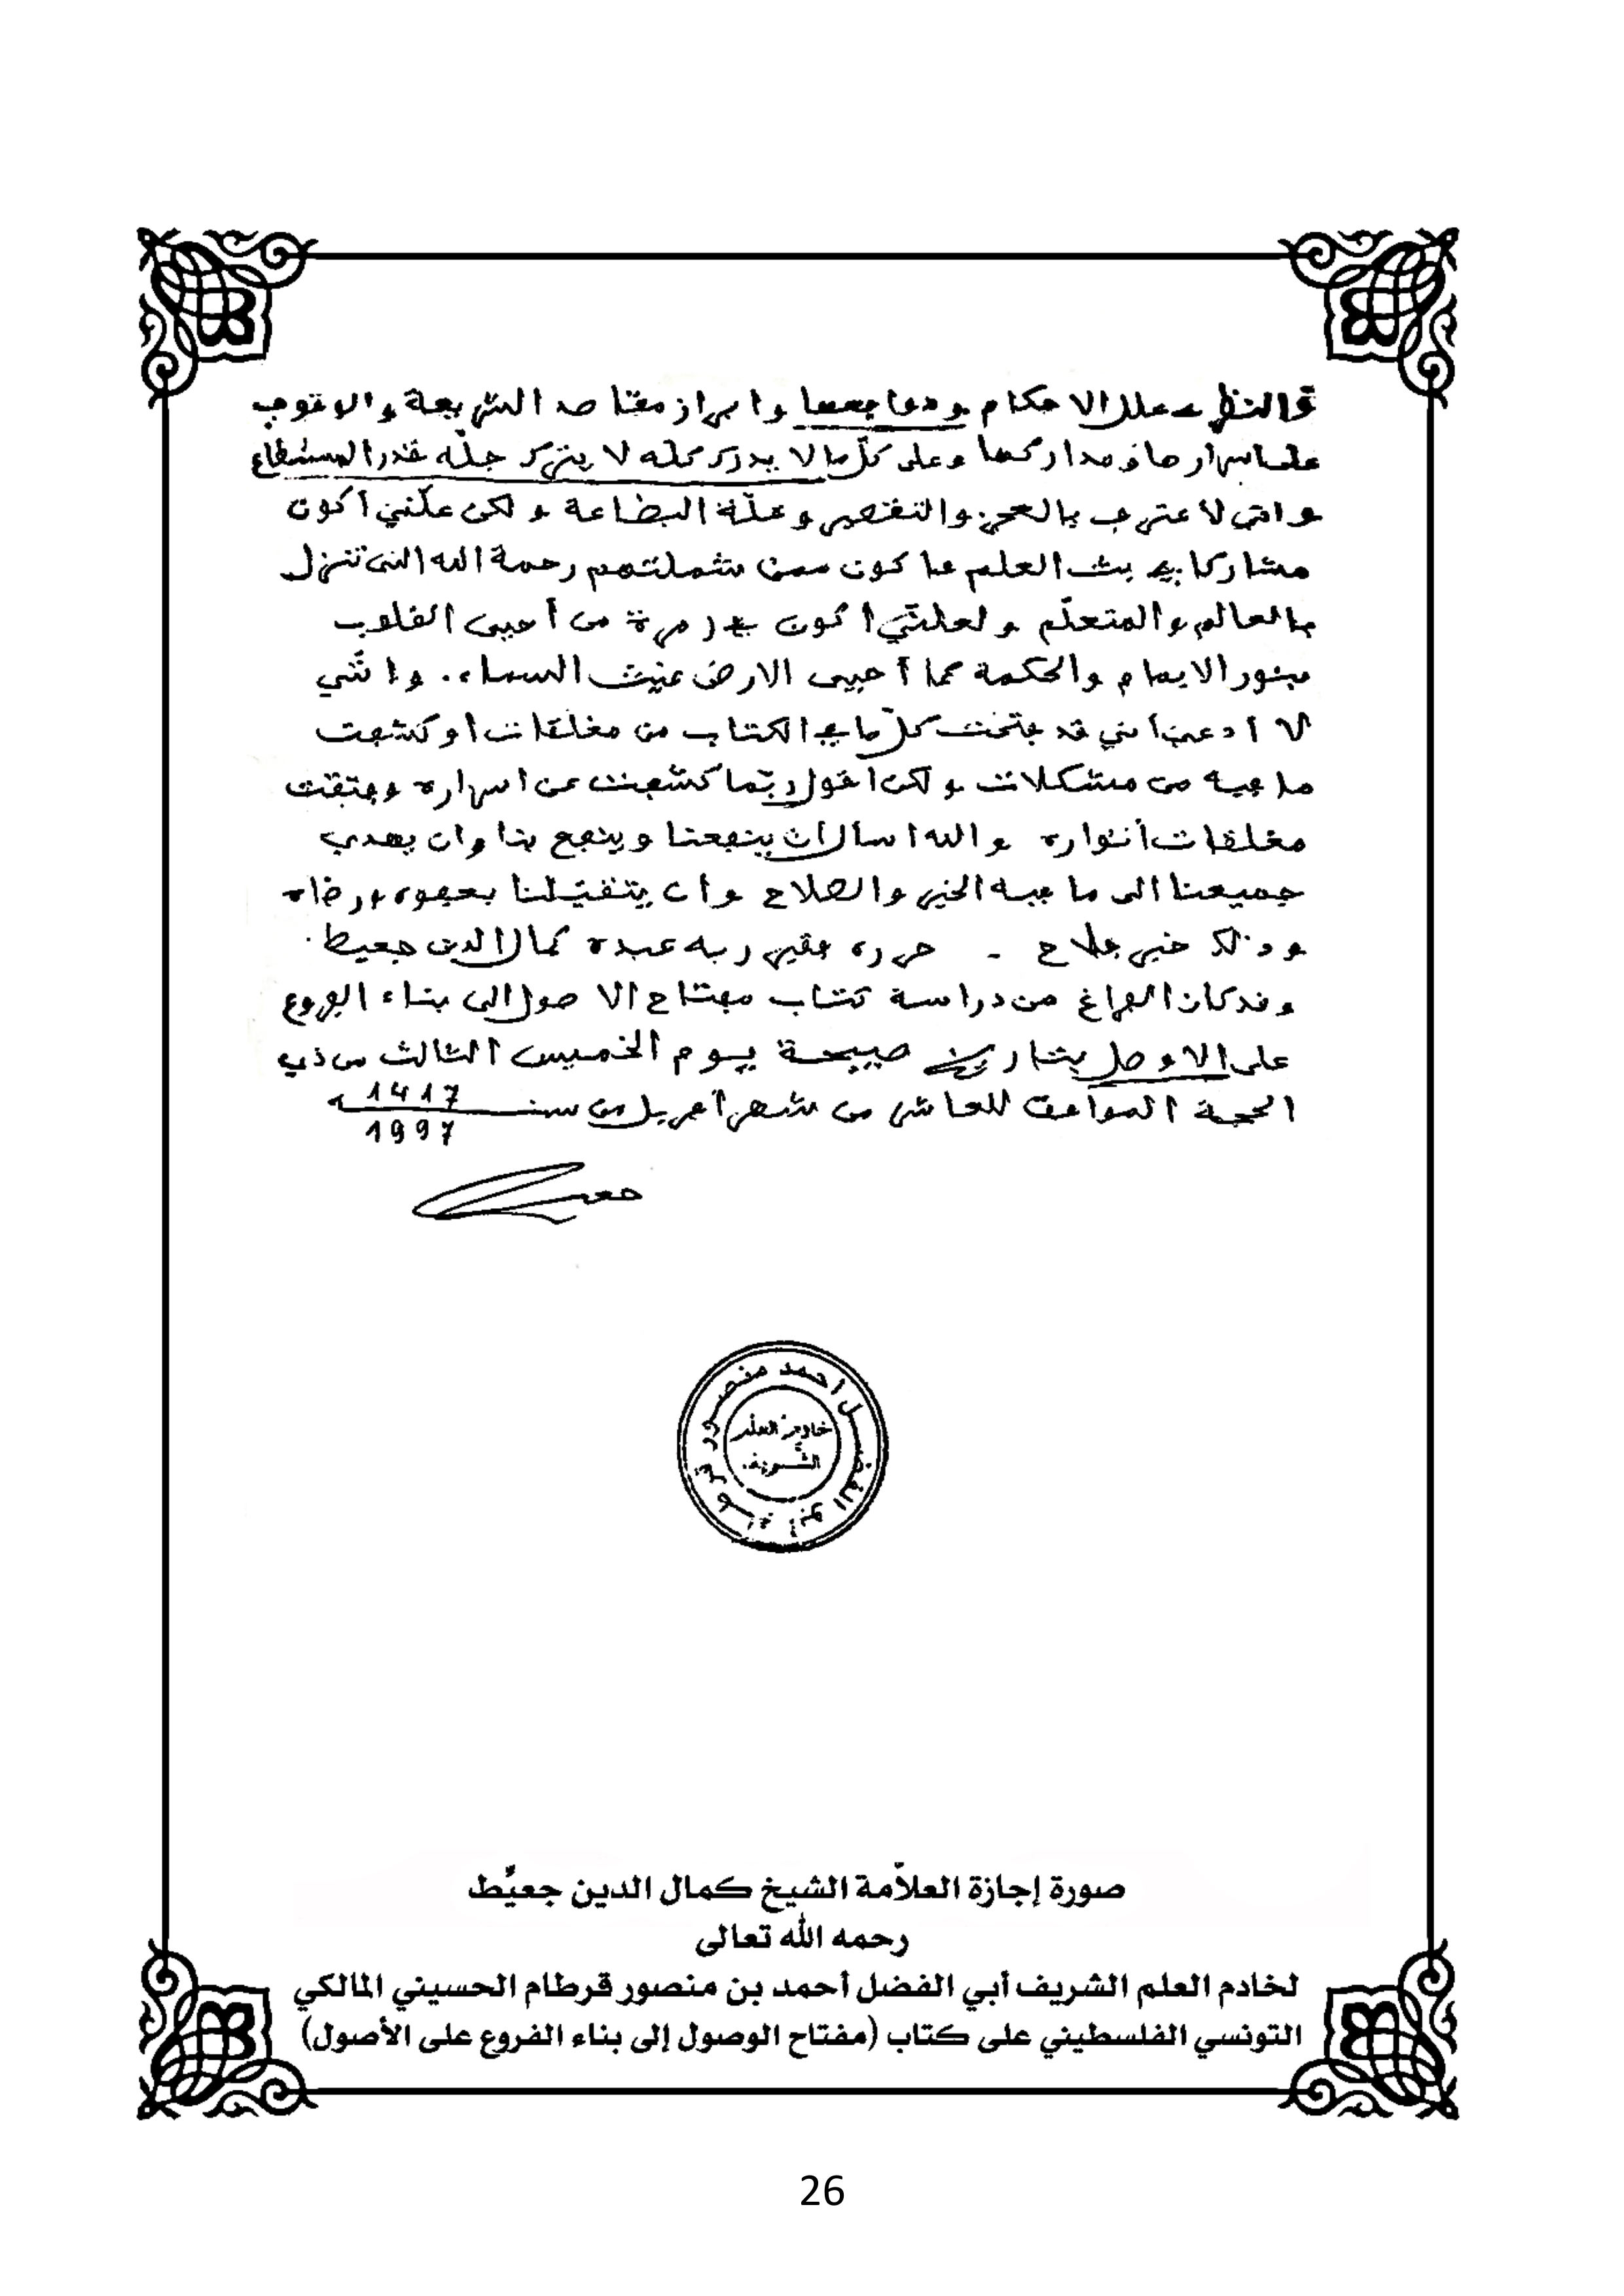 والنظر في علل الاحكام ودوافعها وابراز مقاصد الشريعة والوقوف
على اسرارها ومداركها وعلى كلّ ما لا يدرك كله لا يترك جلّه قدر المستطاع
واني لاعترف بالعجز والتقصير وقلّة البضاعة ولكن علّني أكون
مشاركا في بث العلم فاكون ممن شملتهم رحمة الله التي تنزل
بالعالم والمتعلّم ولعلّني أكون في زمرة من أحيى القلوب
بنور الايمام والحكمة كما أحيى الارض غيث السماء. وانّني
لا ادعي أنني قد فتحت كلّ ما في الكتاب من مغلقات او كشفت
ما فيه من مشكلات ولكن اقول ربّما كشفت عن اسراره وفتقت
مغلقات أنواره والله اسأل ان ينفعنا وينفع بنا وان يهدي
جميعنا الى ما فيه الخير والصلاح وأن يتقبّلنا بعفوه ورضاه
وذلك خير فلاح - حرره فقير ربه عبده كمال الدين جعيط.
وقد كان الفراغ من دراسة كتاب مفتاح الاصول الى بناء الفروع
على الاوصل بتاريخ صبيحة يوم الخميس الثالث من ذي
الحجة الموافق للعاشر من شهر أفريل من سنـة 1417
1997
جعيط
أبو الفضل احمد منصور قرطام
خادم العلم
الشريف
صورة إجازة العلاّمة الشيخ كمال الدين جعيّط
رحمه الله تعالى
لخادم العلم الشريف أبي الفضل أحمد بن منصور قرطام الحسيني المالكي
التونسي الفلسطيني على كتاب (مفتاح الوصول إلى بناء الفروع على الأصول)
26